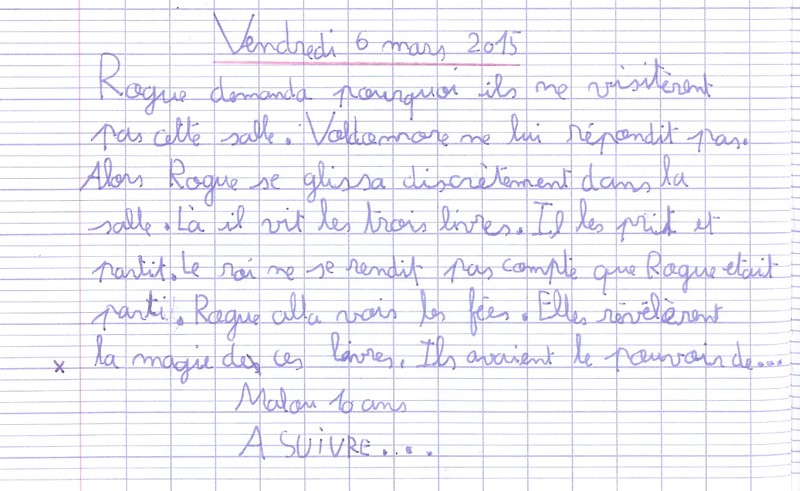 Vendredi 6 mars 2015
Rogue demanda pourquoi ils ne visitèrent
pas cette salle. Valdomore ne lui répondit pas.
Alors Rogue se glissa discrètement dans la
salle. Là il vit les trois livres. Il les prit et
partit. Le roi ne se rendit pas compte que Rogue etait
parti. Rogue alla vois les fées. Elles révélèrent
x la magie des ces livres. Ils avaient le pouvoir de...
Malou 10 ans
A SUIVRE....